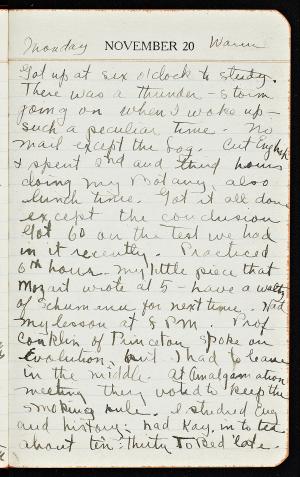 Monday NOVEMBER 20 Warm
Got up at six o'clock to study.
There was a thunder-storm
going on when I woke up -
such a peculiar time. No
mail except the Log. Cut English
& spent 2nd and third hours
doing my Botany, also
lunch time. Got it all done
except the conclusion
Got 60 on the test we had
in it recently. Practiced
6th hour. My little piece that
Mozart wrote at 5 - have a waltz
of Schumann for next time. Had
my lesson at 8 P.M. Prof
Conklin of Princeton spoke on
Evolution, but I had to leave
in the middle. At Amalgamation
meeting they voted to keep the
smoking rule. I studied Eng
and history. Had Kay in to tea
about ten-thirty To Bed late.